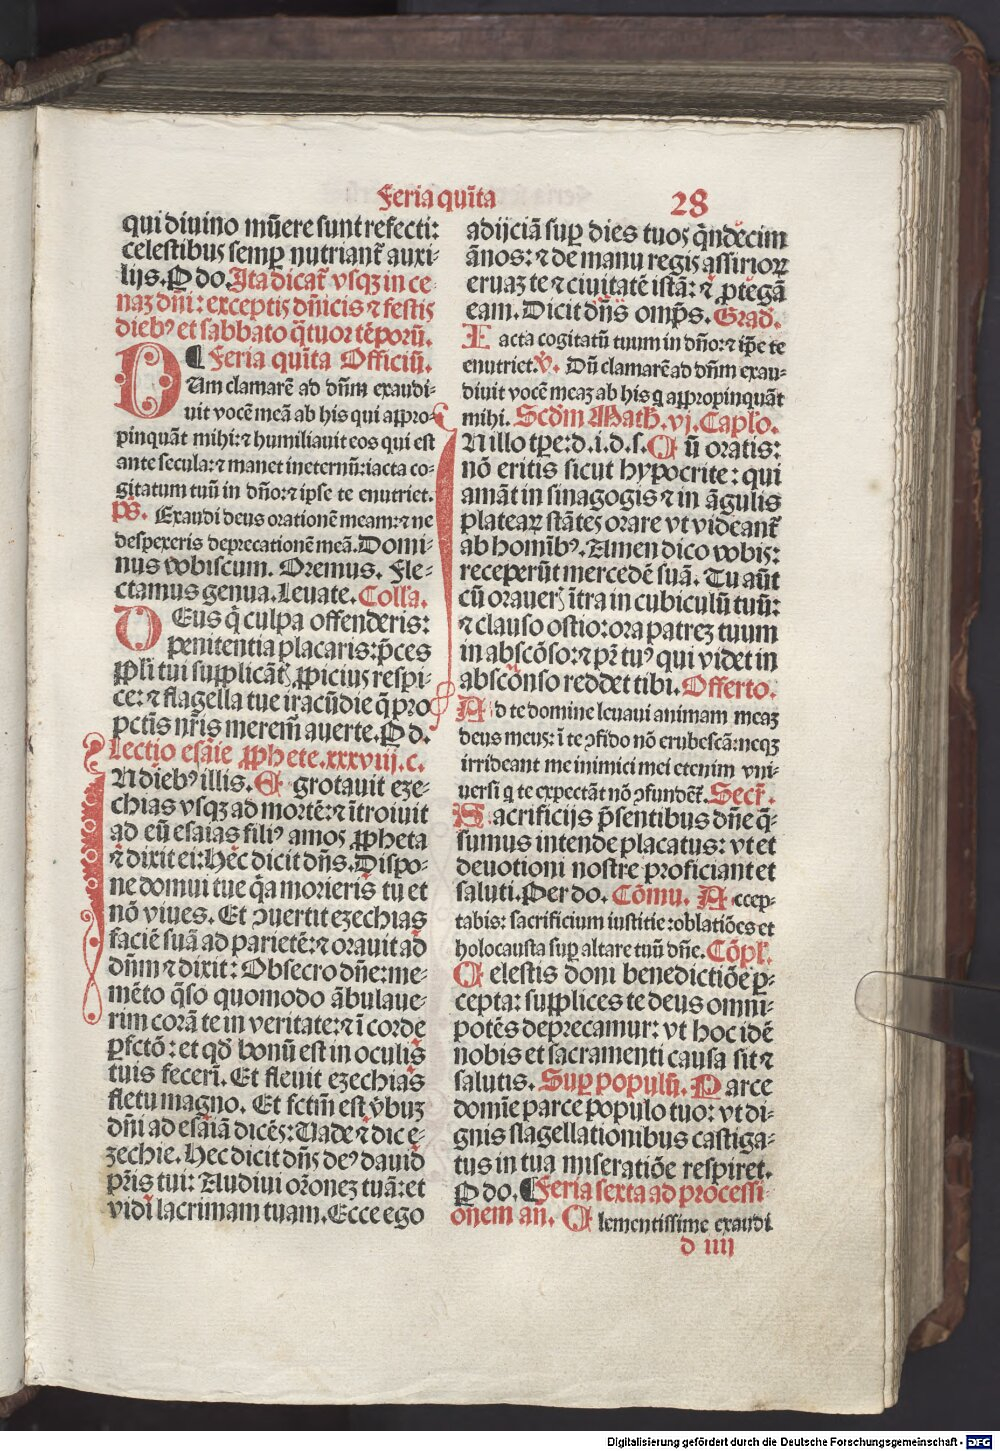 Feria quīta
28
qui diuino mūere sunt refecti:
celestibus semp nutriant̄ auxi-
lijs. P do. Ita dicat̄ vsqꝫ in ce
naꝫ dn̄i: exceptis dn̄icis ⁊ festis
diebꝰ et sabbato q̄tuor tēporū.
¶ Feria quīta Officiū.
DUm clamarē ad dn̄m exaudi-
uit vocē meā ab his qui appro-
pinquāt mihi: ⁊ humiliauit eos qui est
ante secula: ⁊ manet in eternū: iacta co-
gitatum tuū in dn̄o: ⁊ ipse te enutriet.
p̄s. Exaudi deus orationē meam: ⁊ ne
despexeris deprecationē meā. Domi-
nus vobiscum. Oremus. Fle-
ctamus genua. Leuate. Coll'a.
DEus q̄ culpa offenderis:
penitentia placaris: p̄ces
ppl̄i tui supplicātꝭ ꝓpicius respi-
ce: ⁊ flagella tue iracūdie q̄ pro
pctīs nr̄is meremr̄ auerte. P d.
Lectio esaīe ꝓphete. xxxviij. c.
IN dīebꝰ illis. Egrotauit eze-
chias vsqꝫ ad mortē: ⁊ ītroiuit
ad eū esaias filiꝰ amos ꝓpheta
⁊ dixit ei: Hec dicit dn̄s. Dispo-
ne domui tue q̄a morieris tu et
nō viues. Et ↄuertit ezechias
faciē suā ad parietē: ⁊ orauit ad
dn̄m ⁊ dixit: Obsecro dn̄e: me-
mēto q̄so quomodo ābulaue-
rim corā te in veritate: ⁊ ī corde
ꝑfctō: et qd̄ bonū est in oculis
tuis fecerī. Et fleuit ezechias
fletu magno. Et fctm̄ est v̄buꝫ
dn̄i ad esaīā dicēs: Uade ⁊ dic e-
zechie. Hec dicit dn̄s deꝰ dauid
pr̄is tui: Audiui orōneꝫ tuā: et
vidi lacrimam tuam. Ecce ego
adijciā sup dies tuos q̄ndecim
ānos: ⁊ de manu regis assirioꝝ
eruaꝫ te ⁊ ciuitatē istā: ⁊ ꝓtegā
eam. Dicit dn̄s omp̄s. Grad̄.
Iacta cogitatū tuum in dn̄o: ⁊ ip̄e te
enutriet. v̄. Dū clamarē ad dn̄m exau-
diuit vocē meaꝫ ab his q appropinquāt
mihi. Scd̄m Math. vj. Caplo.
IN illo tp̄e: d. i. d. s. Cū oratis:
nō eritis sicut hypocrite: qui
amāt in sinagogis ⁊ in āgulis
plateaꝝ stātes orare vt videant̄
ab homībꝰ. Amen dico vobis:
receperūt mercedē suā. Tu aūt
cū orauerꝭ ītra in cubiculū tuū:
⁊ clauso ostio: ora patreꝫ tuum
in abscōso: ⁊ pr̄ tuꝰ qui videt in
abscōnso reddet tibi. Offerto.
Ad te domine leuaui animam meaꝫ
deus meus: ī te ↄfido nō erubescā: neqꝫ
irrideant me inimici mei etenim vni-
uersi q te expectāt nō ↄfundēt̄. Secr̄.
Sacrificijs p̄sentibus dn̄e q̄-
sumus intende placatus: vt et
deuotioni nostre proficiant et
saluti. Per do. Cōmu. Accep-
tabis: sacrificium iustitie: oblatiōes et
holocausta sup altare tuū dn̄e. Cōpl̄.
Celestis doni benedictiōe ꝑ-
cepta: supplices te deus omni-
potēs deprecamur: vt hoc idē
nobis et sacramenti causa sit ⁊
salutis. Sup populū. Parce
domīe parce populo tuo: vt di-
gnis flagellationibus castiga-
tus in tua miseratiōe respiret.
P do. ¶ Feria sexta ad processi-
onem an̄. Clementissime exaudi
d iiij
Digitalisierung gefördert durch die Deutsche Forschungsgemeinschaft - DFG